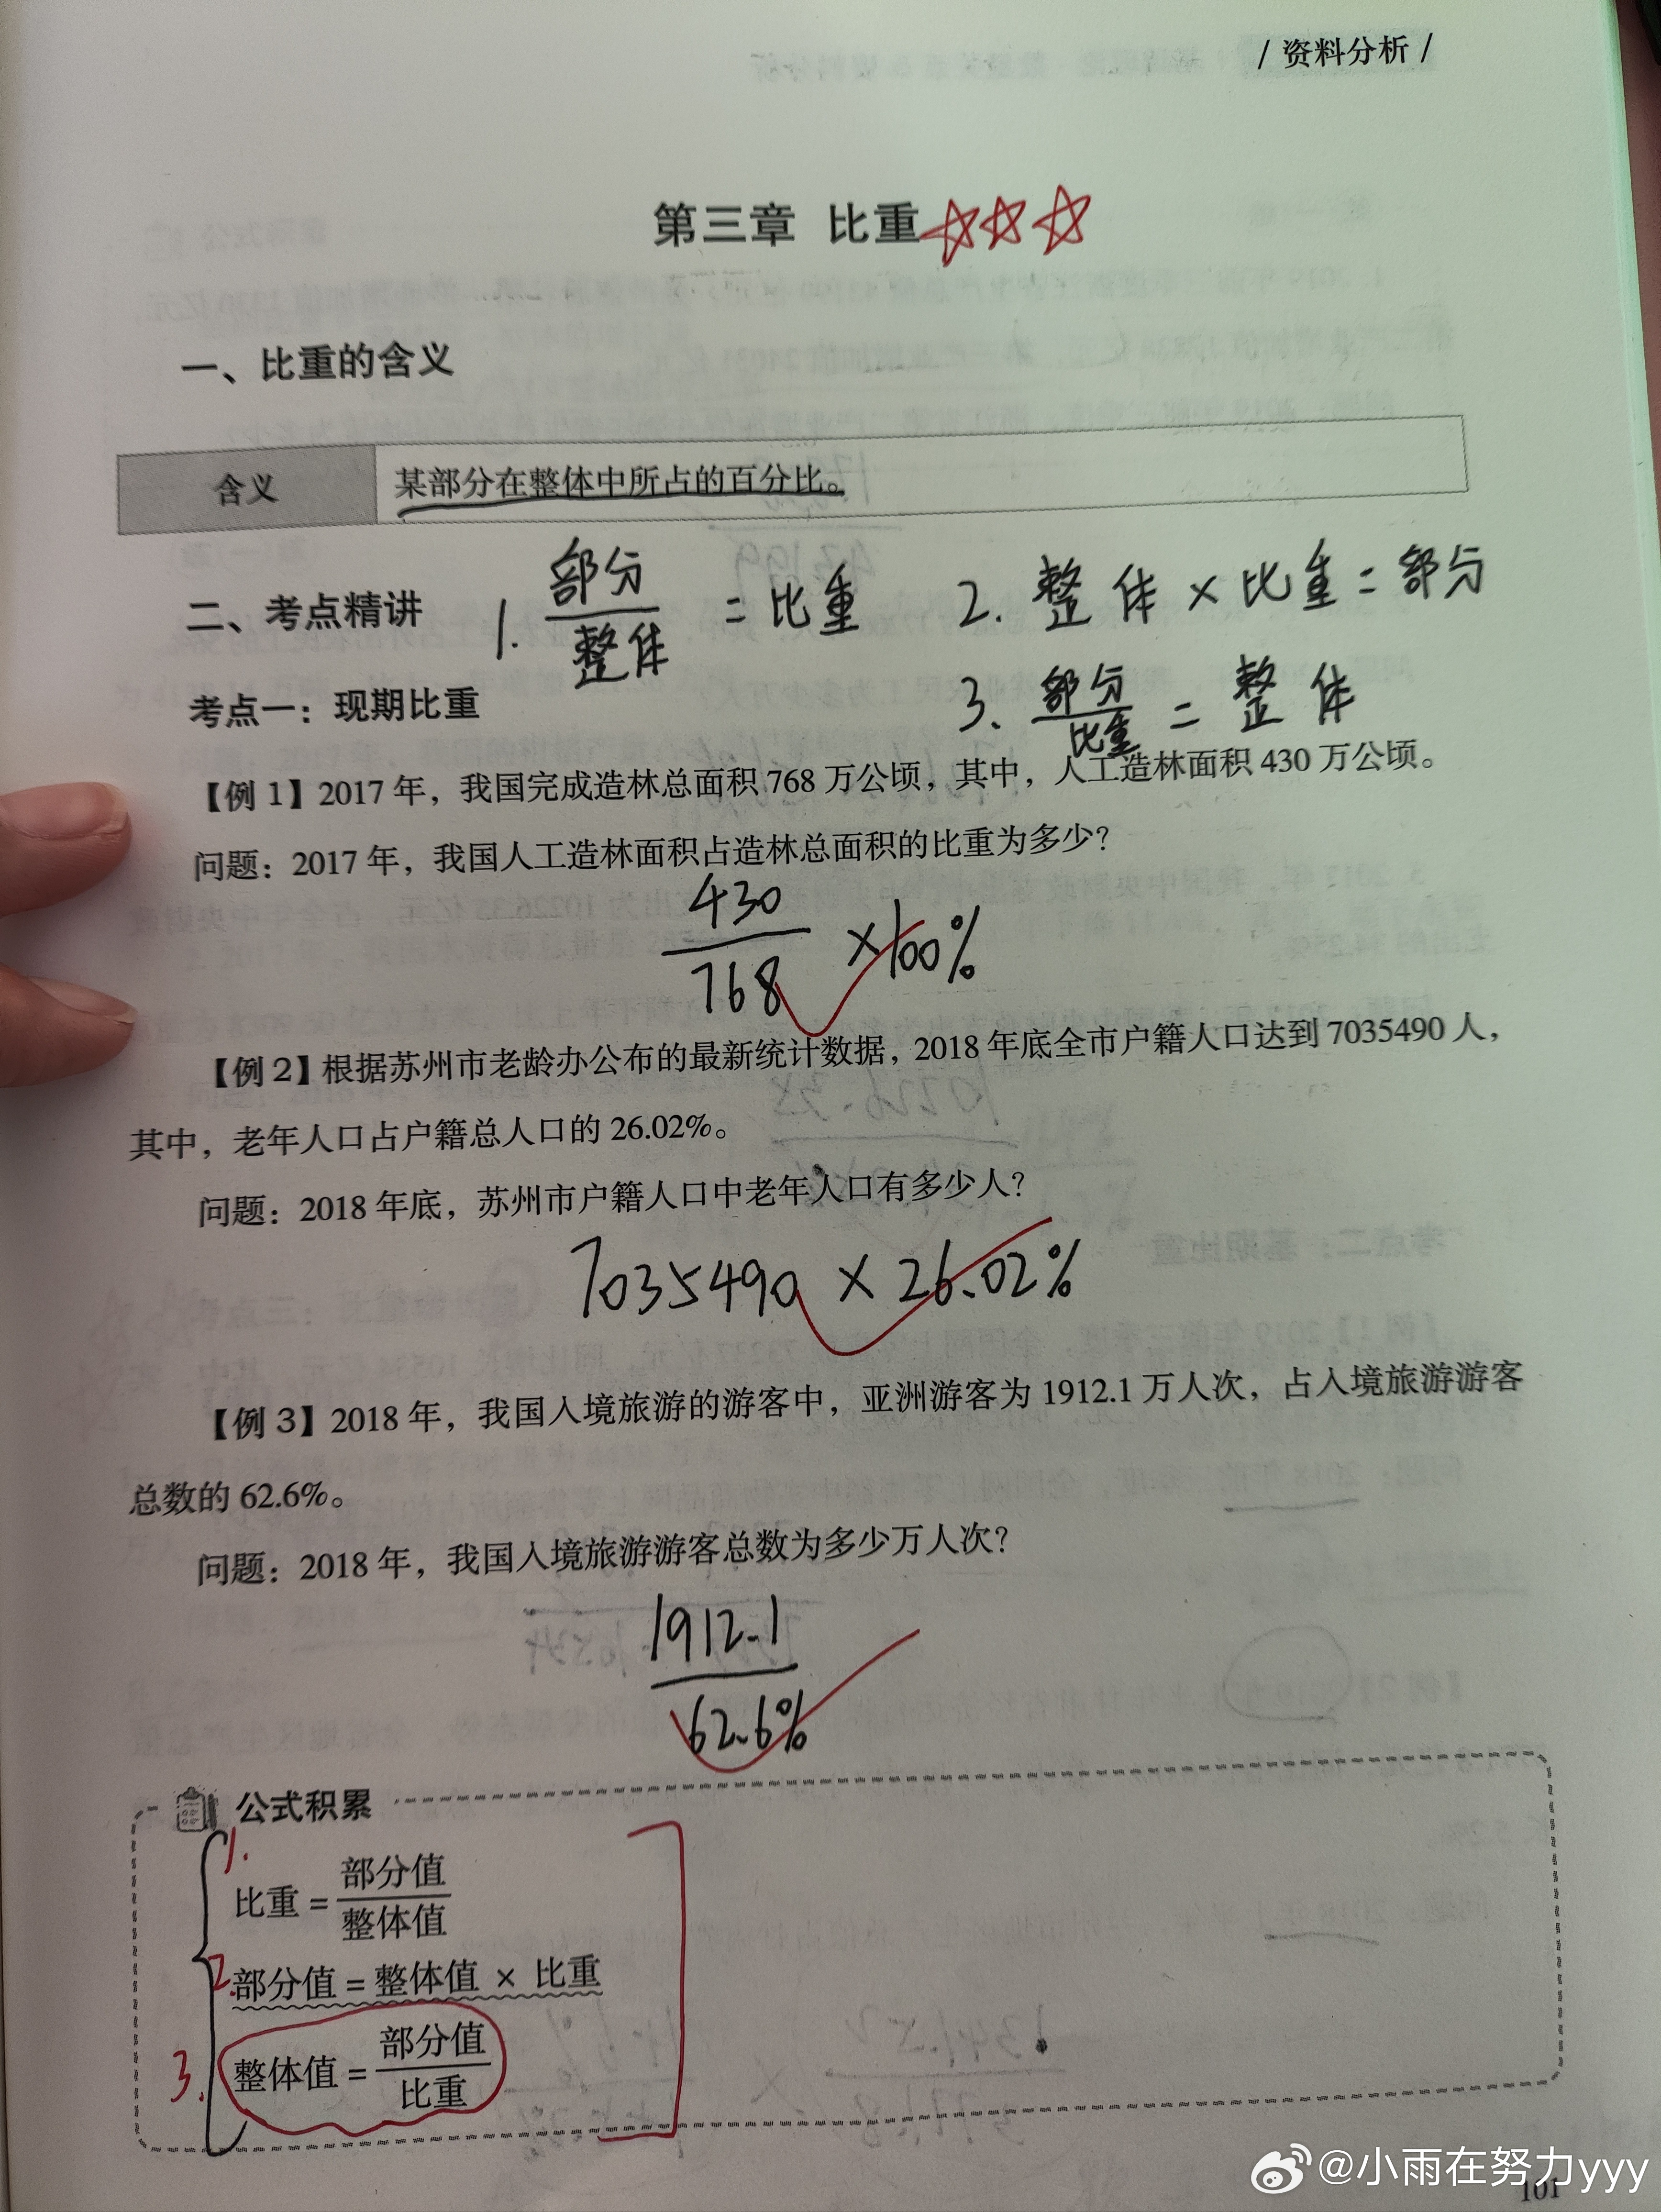 / 资料分析 /
第三章 比重
一、比重的含义
含义 某部分在整体中所占的百分比。
二、考点精讲
1. 部分/整体 = 比重
2. 整体 × 比重 = 部分
考点一：现期比重
3. 部分/比重 = 整体
【例 1】2017 年，我国完成造林总面积 768 万公顷，其中，人工造林面积 430 万公顷。
问题：2017 年，我国人工造林面积占造林总面积的比重为多少？
430/768 ×100%
【例 2】根据苏州市老龄办公布的最新统计数据，2018 年底全市户籍人口达到 7035490 人，
其中，老年人口占户籍总人口的 26.02%。
问题：2018 年底，苏州市户籍人口中老年人口有多少人？
7035490 × 26.02%
【例 3】2018 年，我国入境旅游的游客中，亚洲游客为 1912.1 万人次，占入境旅游游客
总数的 62.6%。
问题：2018 年，我国入境旅游游客总数为多少万人次？
1912.1/62.6%
公式积累
1.
比重 = 部分值/整体值
2. 部分值 = 整体值 × 比重
3. 整体值 = 部分值/比重
@小雨在努力yyy
101